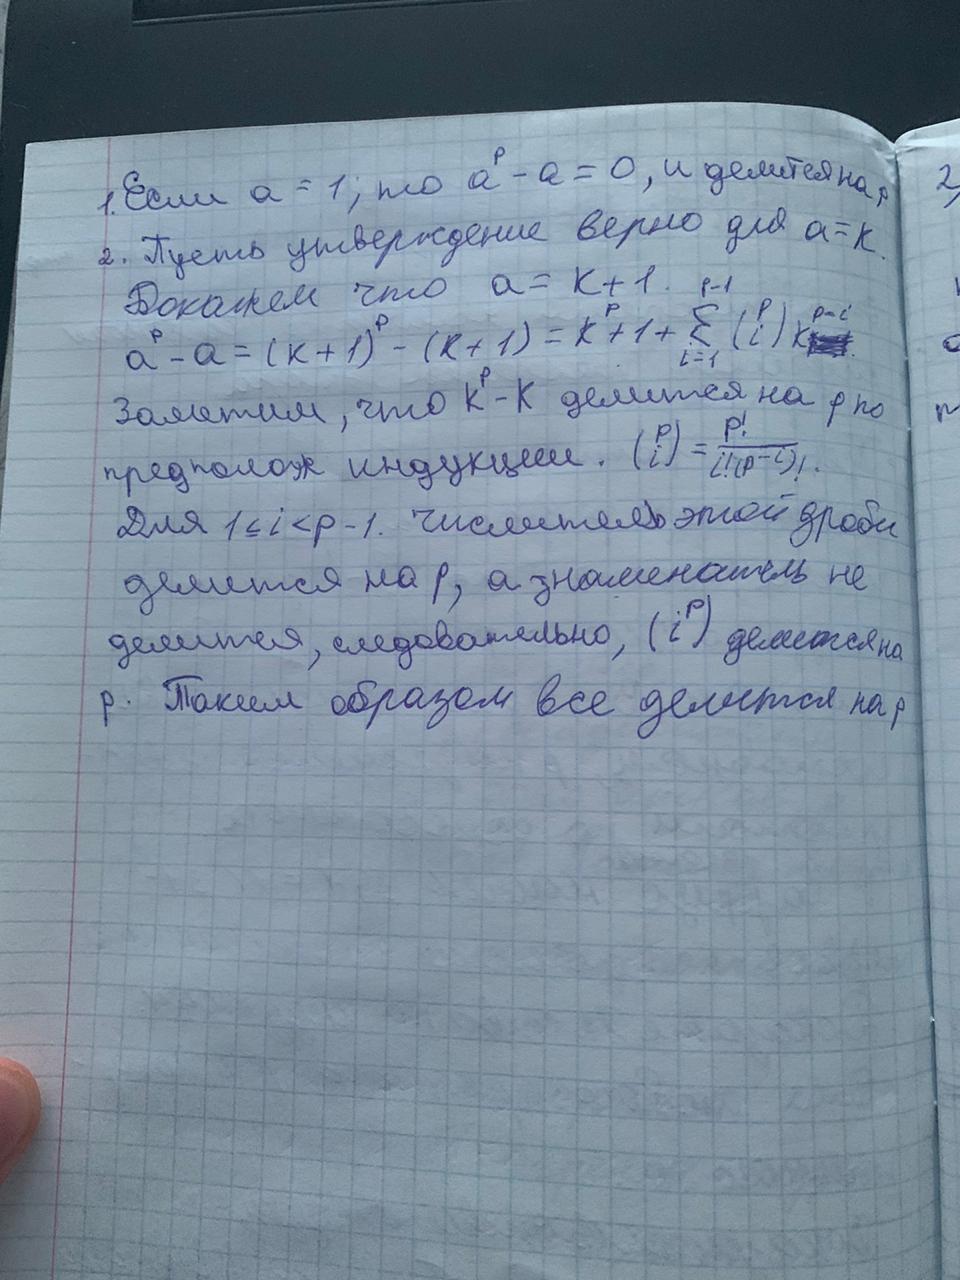 1. Если a = 1, то a^p - a = 0, и делится на p
2. Пусть утверждение верно для a = k.
Докажем что a = k + 1.
a^p - a = (k+1)^p - (k+1) = k^p + 1 + \sum_{i=1}^{p-1} \binom{p}{i} k^{p-i}
Заметим, что k^p - k делится на p по
предполож индукции. \binom{p}{i} = \frac{p!}{i!(p-i)!}.
Для 1 ≤ i < p - 1. Числитель этой дроби
делится на p, а знаменатель не
делится, следовательно, \binom{p}{i} делится на
p. Таким образом все делится на p
2,